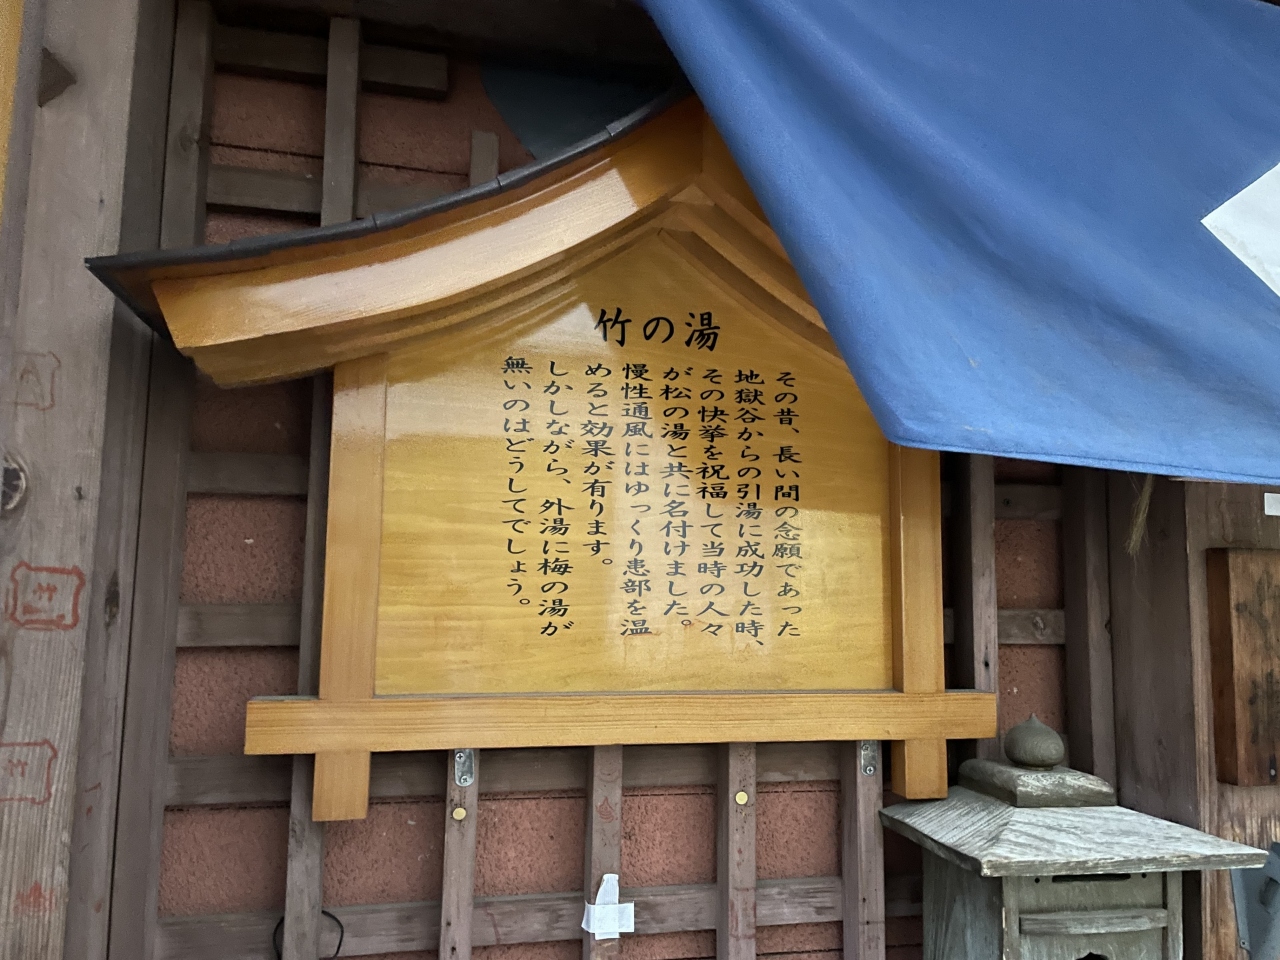 竹の湯
その昔、長い間の念願であった
地獄谷からの引湯に成功した時、
その快挙を祝福して当時の人々
が松の湯と共に名付けました。
慢性通風にはゆっくり患部を温
めると効果が有ります。
しかしながら、外湯に梅の湯が
無いのはどうしてでしょう。